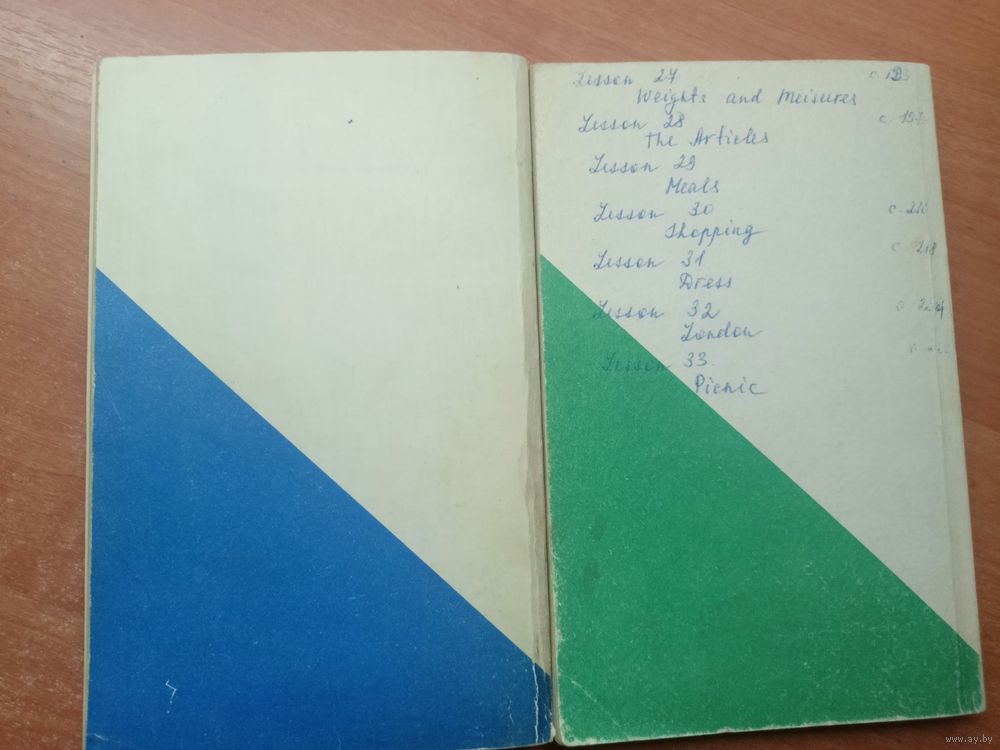 Lesson 27
Weights and Meisures
Lesson 28 c. 197
The Articles
Lesson 29
Meals
Lesson 30 c.
Shopping
Lesson 31 c. 218
Dress
Lesson 32
London
Lesson 33.
Picnic
www.ay.by